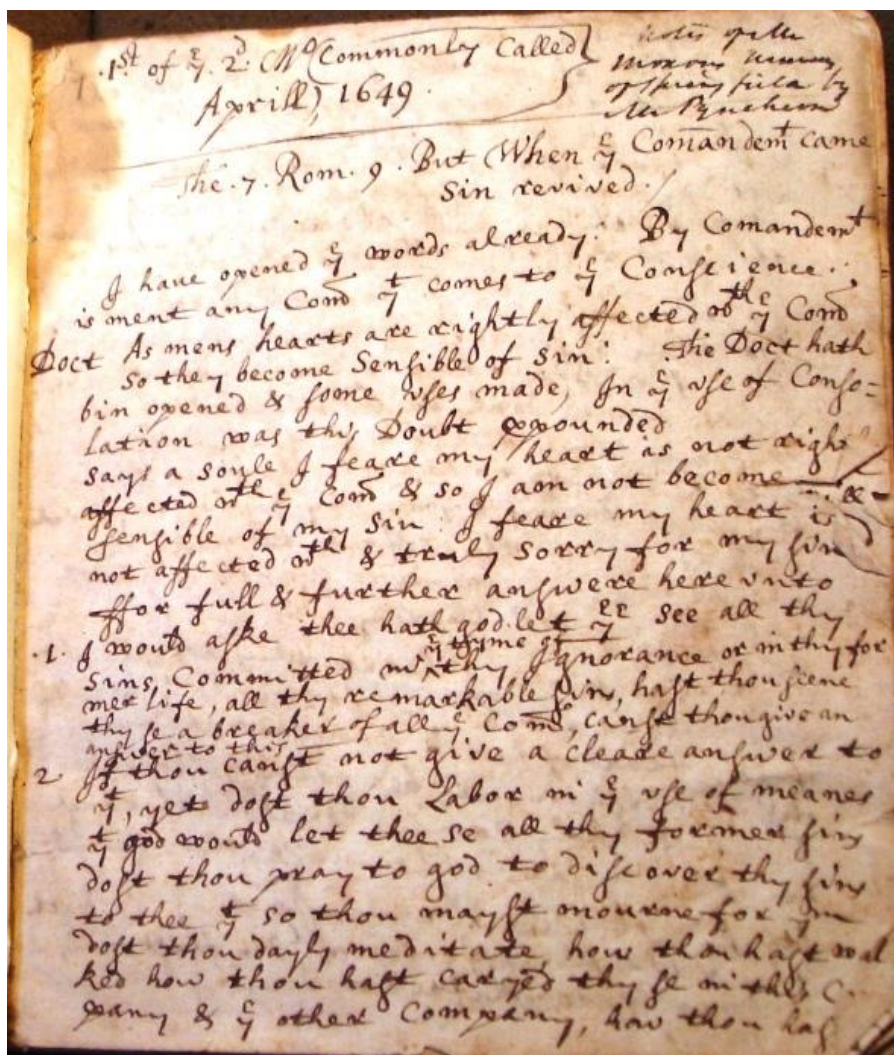 .1st. of ye. 2d. Mo (Commonly Called
Aprill) 1649.
Notes of Mr
Moxons
of Springfield by
Mr Pynchon
The. 7. Rom. 9. But When ye Comandemt came
Sin revived.
I have opened ye words already. By Comandemt
is ment any Com̄d yt comes to ye Conscience.
Doct As mens hearts are rightly affected wth ye Com̄d
So they become Sensible of Sin: The Doct hath
bin opened & some vses made, In ye vse of Conso=
lation was this Doubt
says a soule I feare my heart is not right
affected wth ye Com̄d & so I am not become
sensible of my sin: I feare my heart is
not affected wth & truly sorry for my sin
ffor full & further answere here vnto
.1. I would aske thee hath god let yee see all thy
Sins Committed in ye tyme of thy Ignorance or in thy for
mer life, all thy remarkable sins, hast thou seene
thy se a breaker of all ye Com̄d, canst thou give an
answer to this
2 If thou canst not give a cleare answer to
yt, yet dost thou Labor in ye vse of meanes
yt god would let thee se all thy former sins
dost thou pray to god to discover thy sins
to thee yt so thou mayst mourne for ym
dost thou dayly meditate, how thou hast wal
ked how thou hast caryed thy se in this C
pany & ye other Company, how thou has